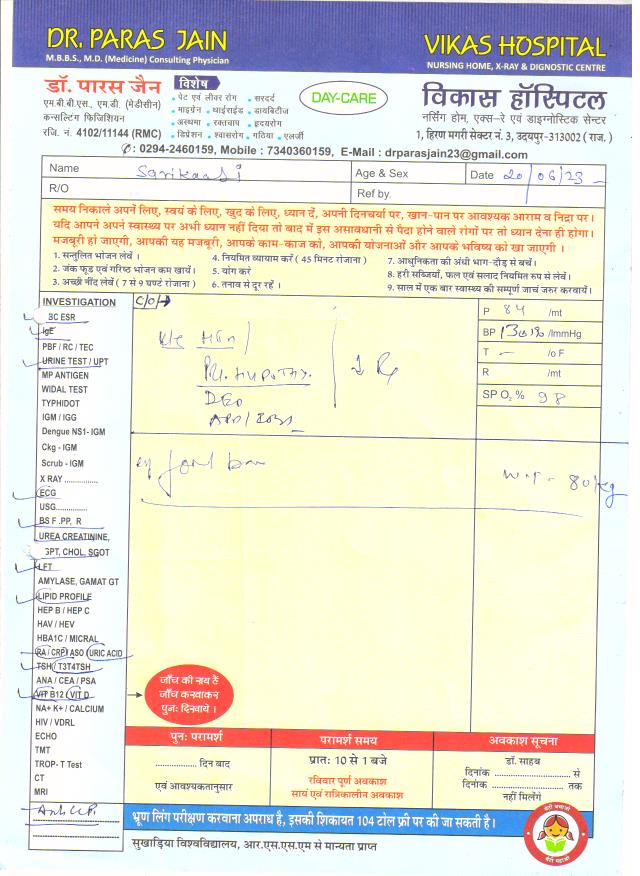 DR. PARAS JAIN
M.B.B.S., M.D. (Medicine) Consulting Physician
VIKAS HOSPITAL
NURSING HOME, X-RAY & DIGNOSTIC CENTRE
डॉ. पारस जैन
एम.बी.बी.एस., एम.डी. (मेडीसीन)
कन्सल्टिंग फिजिशियन
रजि. नं. 4102/11144 (RMC)
विशेष
• पेट एवं लीवर रोग • सरदर्द
• माइग्रेन • थाईराईड • डायबिटीज
• अस्थमा • रक्तचाप • हृदयरोग
• डिप्रेशन • श्वासरोग • गठिया • एलर्जी
DAY-CARE
विकास हॉस्पिटल
नर्सिंग होम, एक्स-रे एवं डाइग्नोस्टिक सेन्टर
1, हिरण मगरी सेक्टर नं. 3, उदयपुर-313002 (राज.)
: 0294-2460159, Mobile : 7340360159, E-Mail : drparasjain23@gmail.com
Name
Age & Sex
Date 20/06/23
R/O
Ref by.
समय निकाले अपनें लिए, स्वयं के लिए, खुद के लिए, ध्यान दें, अपनी दिनचर्या पर, खान-पान पर आवश्यक आराम व निद्रा पर।
यदि आपने अपने स्वास्थ्य पर अभी ध्यान नहीं दिया तो बाद में इस असावधानी से पैदा होने वाले रोगों पर तो ध्यान देना ही होगा।
मजबूरी हो जाएगी, आपकी यह मजबूरी, आपके काम-काज को, आपकी योजनाओं और आपके भविष्य को खा जाएगी ।
1. सन्तुलित भोजन लेवें ।
2. जंक फूड एवं गरिष्ठ भोजन कम खायें।
3. अच्छी नींद लेवें ( 7 से 9 घण्टे रोजाना )
4. नियमित व्यायाम करें ( 45 मिनट रोजाना )
5. योग करे
6. तनाव से दूर रहें ।
7. आधुनिकता की अंधी भाग-दौड़ से बचें।
8. हरी सब्जियाँ, फल एवं सलाद नियमित रुप से लेवें।
9. साल में एक बार स्वास्थ्य की सम्पूर्ण जाचं जरुर करवायें।
INVESTIGATION
BC ESR
IgE
PBF / RC / TEC
URINE TEST / UPT
MP ANTIGEN
WIDAL TEST
TYPHIDOT
IGM / IGG
Dengue NS1- IGM
Ckg - IGM
Scrub - IGM
X RAY ..............
ECG
USG...............
BS F .PP, R
UREA CREATININE,
GPT, CHOL, SGOT
LFT
AMYLASE, GAMAT GT
LIPID PROFILE
HEP B / HEP C
HAV / HEV
HBA1C / MICRAL
RA / CRP / ASO / URIC ACID
TSH / T3T4TSH
ANA / CEA / PSA
VIT B12 / VIT D
NA+ K+ / CALCIUM
HIV / VDRL
ECHO
TMT
TROP- T Test
CT
MRI
C/O/
P 84 /mt
BP /lmmHg
T – /o F
R /mt
SP O2 % 98
80 kg
जाँच की राय है
जाँच करवाकर
पुनः दिखायें ।
पुनः परामर्श
................ दिन बाद
एवं आवश्यकतानुसार
परामर्श समय
प्रातः 10 से 1 बजे
रविवार पूर्ण अवकाश
सायं एवं रात्रिकालीन अवकाश
अवकाश सूचना
डॉ. साहब
दिनांक .................... से
दिनांक .................... तक
नहीं मिलेंगे
भ्रूण लिंग परीक्षण करवाना अपराध है, इसकी शिकायत 104 टोल फ्री पर की जा सकती है।
बेटी बचाओ
बेटी पढ़ाओ
सुखाड़िया विश्वविद्यालय, आर.एस.एस.एम से मान्यता प्राप्त